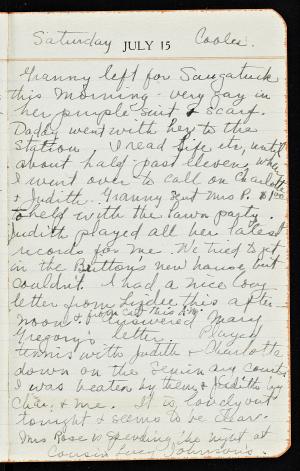 Saturday JULY 15 Cooler.
Granny left for Saugatuck
this morning - very gay in
her purple suit & scarf.
Daddy went with her to the
station. I read Life etc, until
about half-past eleven, when
I went over to call on Charlotte
& Judith. Granny sent Mrs P. $1.00
to help with the lawn party.
Judith played all her latest
records for me. We tried to get
in the Britton's new house, but
couldn't. I had a nice long
letter from Lizdee this after-
noon. & from Cis this a.m.
Answered Mary
Gregory's letter. Played
tennis with Judith & Charlotte
down on the Seminary courts
I was beaten by them, & Judith by
Char. & me. It is lovely out
tonight & seems to be clear.
Mrs Rose is spending the night at
Cousin Lucy Johnson's.